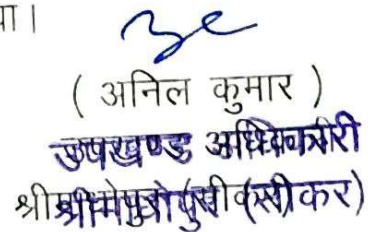 या।
( अनिल कुमार )
उपखण्ड अधिकारी
श्रीमाधोपुर (सीकर)